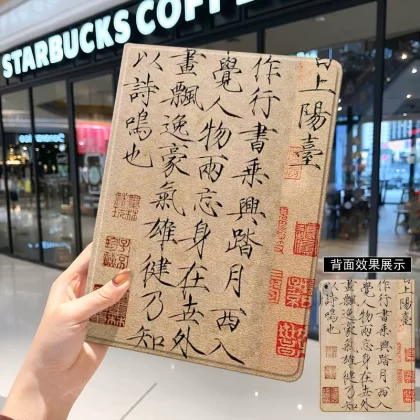 STARBUCKS COFF
上陽臺
作行書乘興踏月西入
覺人物兩忘身在世外
畫飄逸豪氣雄健乃知
以詩鳴也
背面效果展示
上陽臺
作行書乘興踏月西入
覺人物兩忘身在世外
畫飄逸豪氣雄健乃知
以詩鳴也